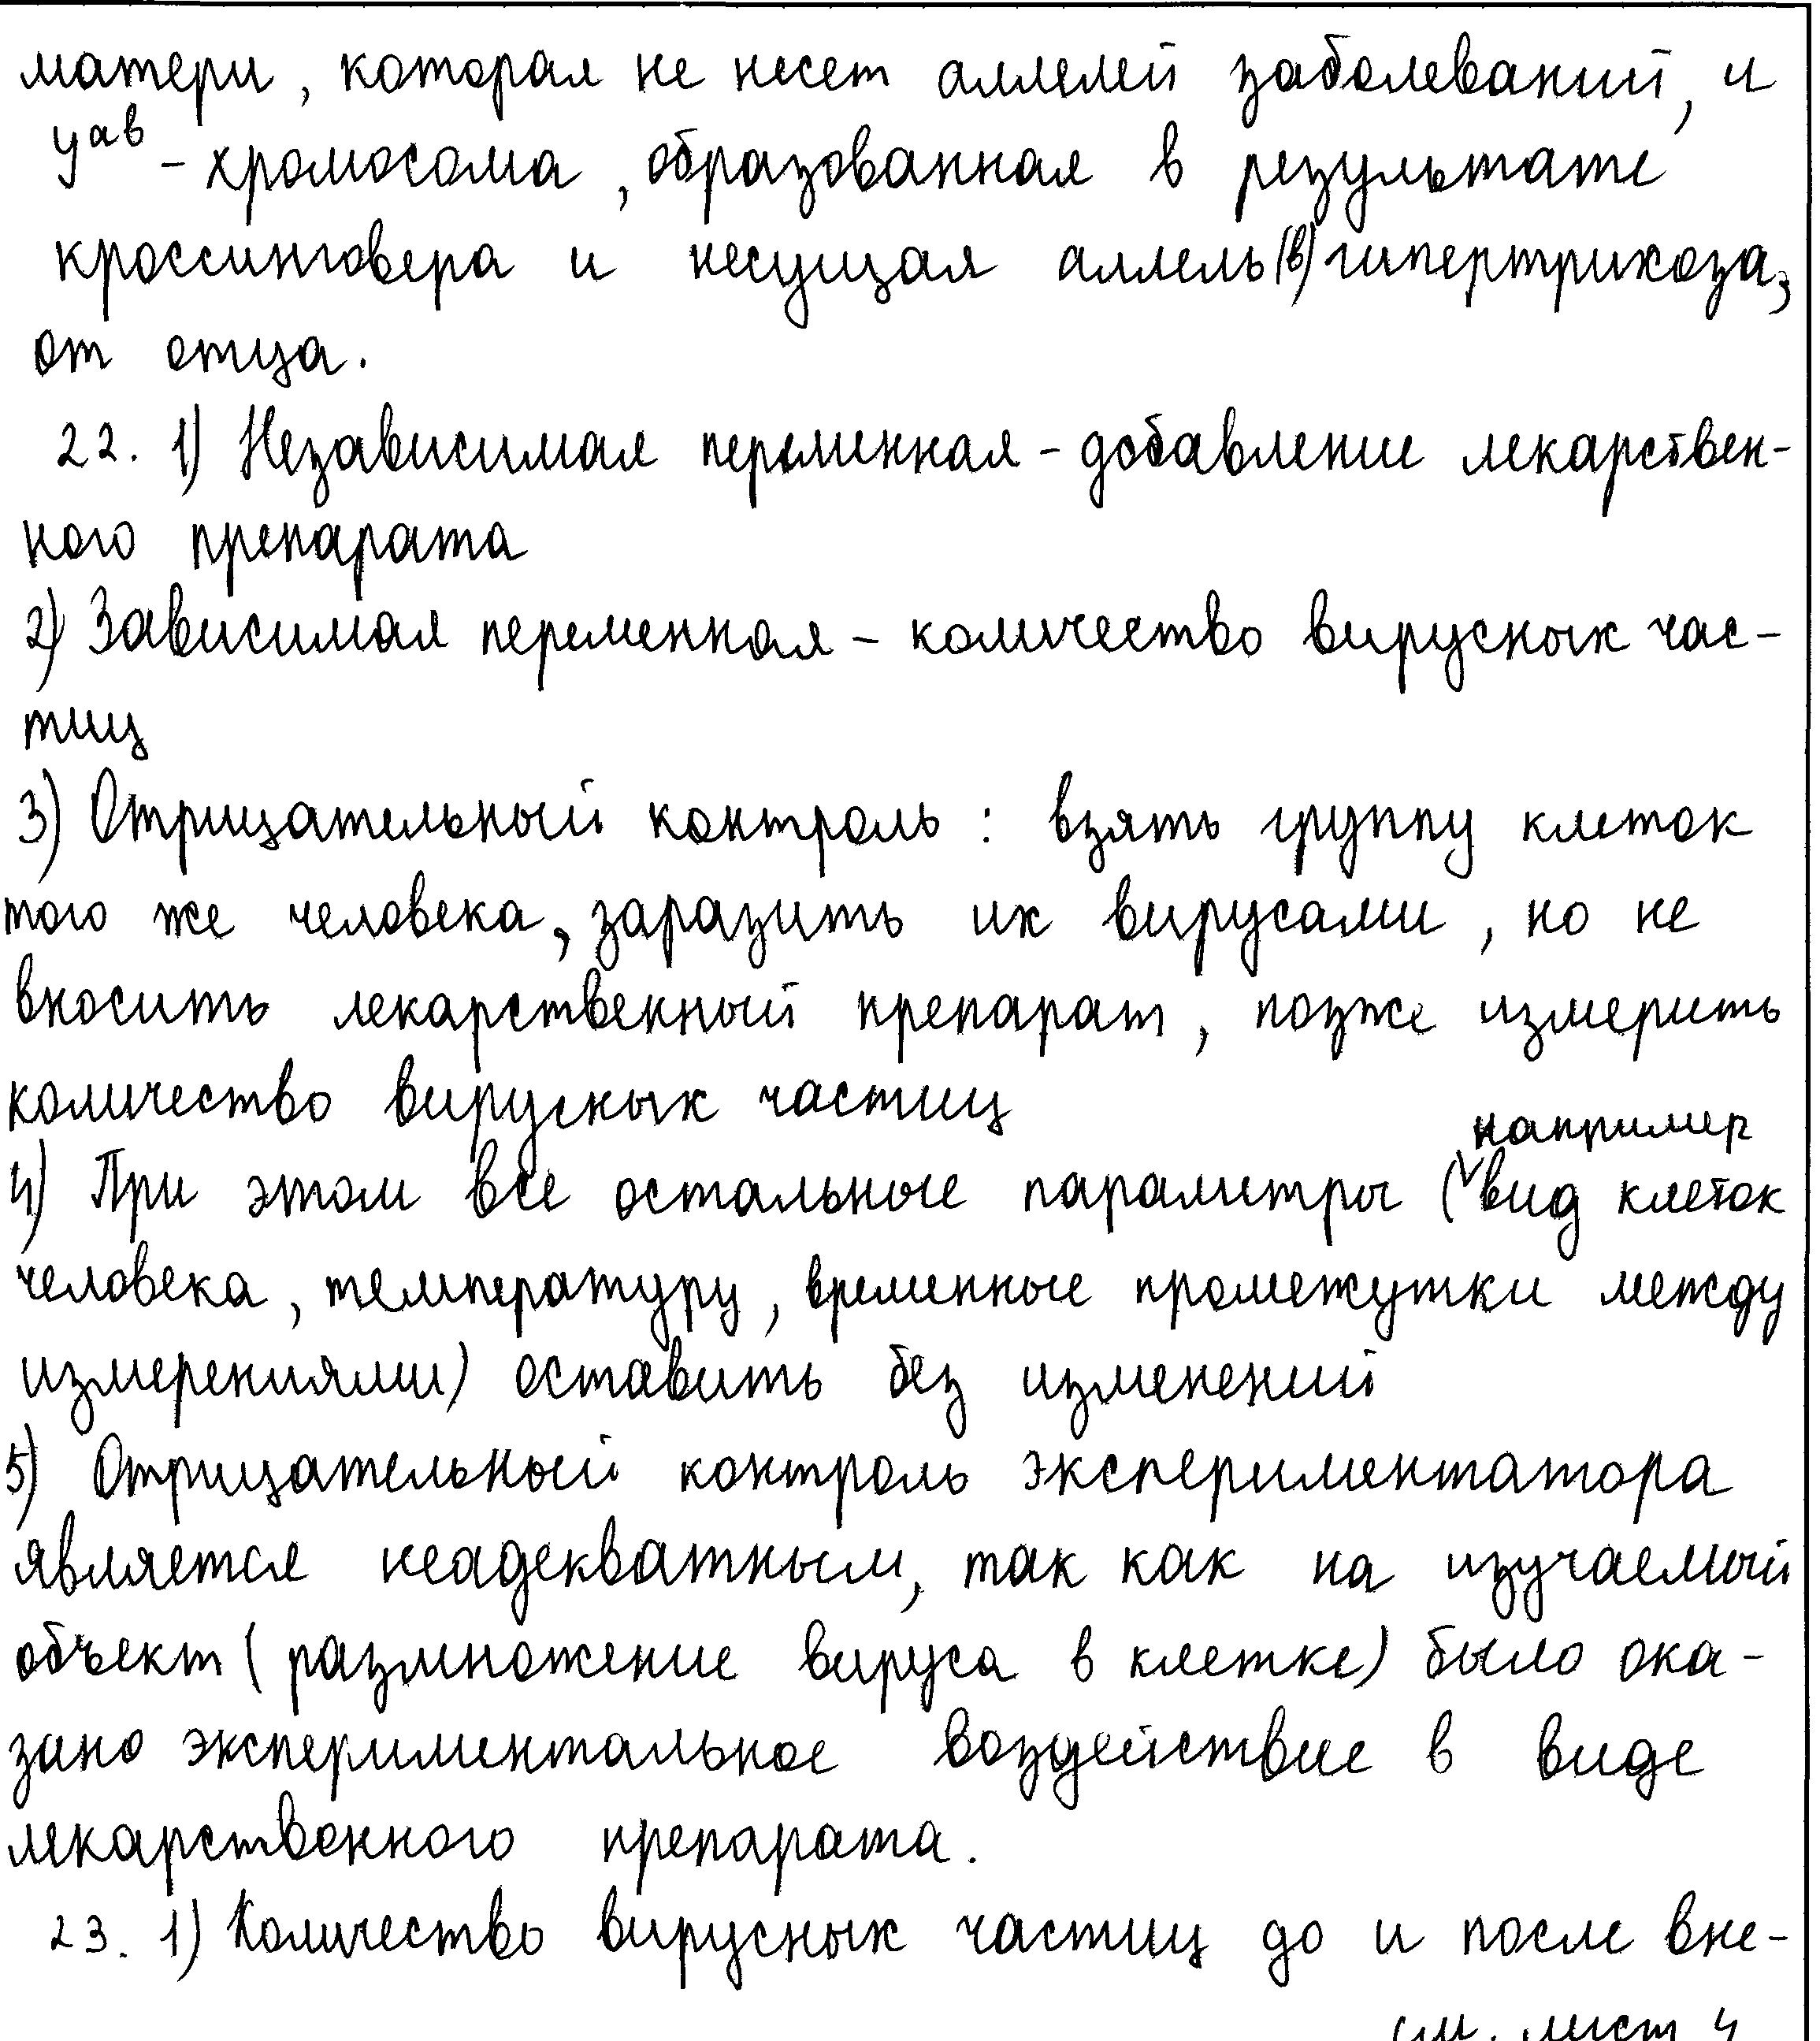 матери, которая не несет аллелей заболеваний, и
Yав - хромосома, образованная в результате
кроссинговера и несущая аллель (в) гипертрихоза,
от отца.
22. 1) Независимая переменная - добавление лекарствен-
ного препарата
2) Зависимая переменная - количество вирусных час-
тиц
3) Отрицательный контроль: взять группу клеток
того же человека, заразить их вирусами, но не
вносить лекарственный препарат, позже измерить
количество вирусных частиц
например
4) При этом все остальные параметры (вид клеток
человека, температуру, временные промежутки между
измерениями) оставить без изменений
5) Отрицательный контроль экспериментатора
является неадекватным, так как на изучаемый
объект (размножение вируса в клетке) было ока-
зано экспериментальное воздействие в виде
лекарственного препарата.
23. 1) Количество вирусных частиц до и после вне-
см. лист 4